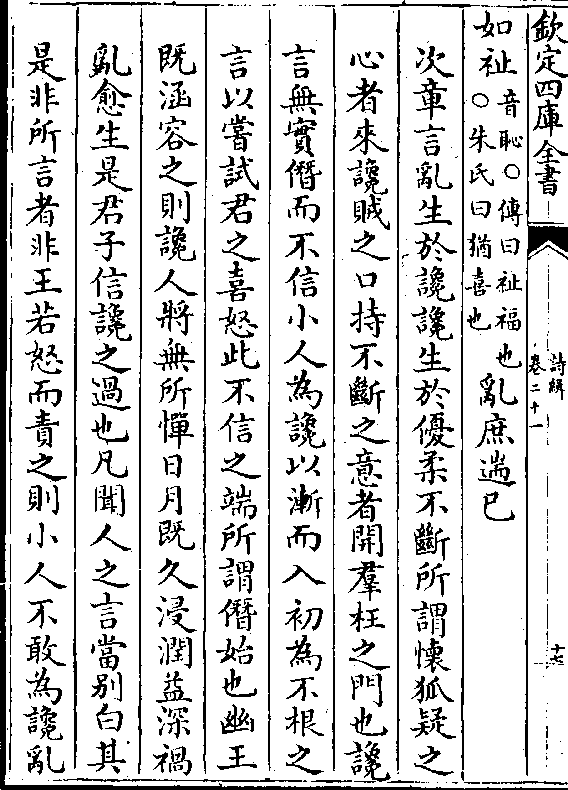 欽定四庫全書
詩緝
卷二十一
十七
如祉音恥○傳曰祉福也
○朱氏曰猶喜也
亂庶遄已
次章言亂生於讒讒生於優柔不斷所謂懷狐疑之
心者來讒賊之口持不斷之意者開羣枉之門也讒
言無實僭而不信小人為讒以漸而入初為不根之
言以嘗試君之喜怒此不信之端所謂僭始也幽王
既涵容之則讒人將無所憚日月既久浸潤益深禍
亂愈生是君子信讒之過也凡聞人之言當别白其
是非所言者非王若怒而責之則小人不敢為讒亂